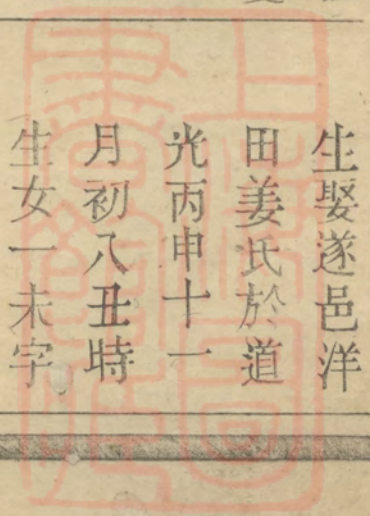 生娶遂邑洋
田姜氏於道
光丙申十一
月初八丑時
生女一未字